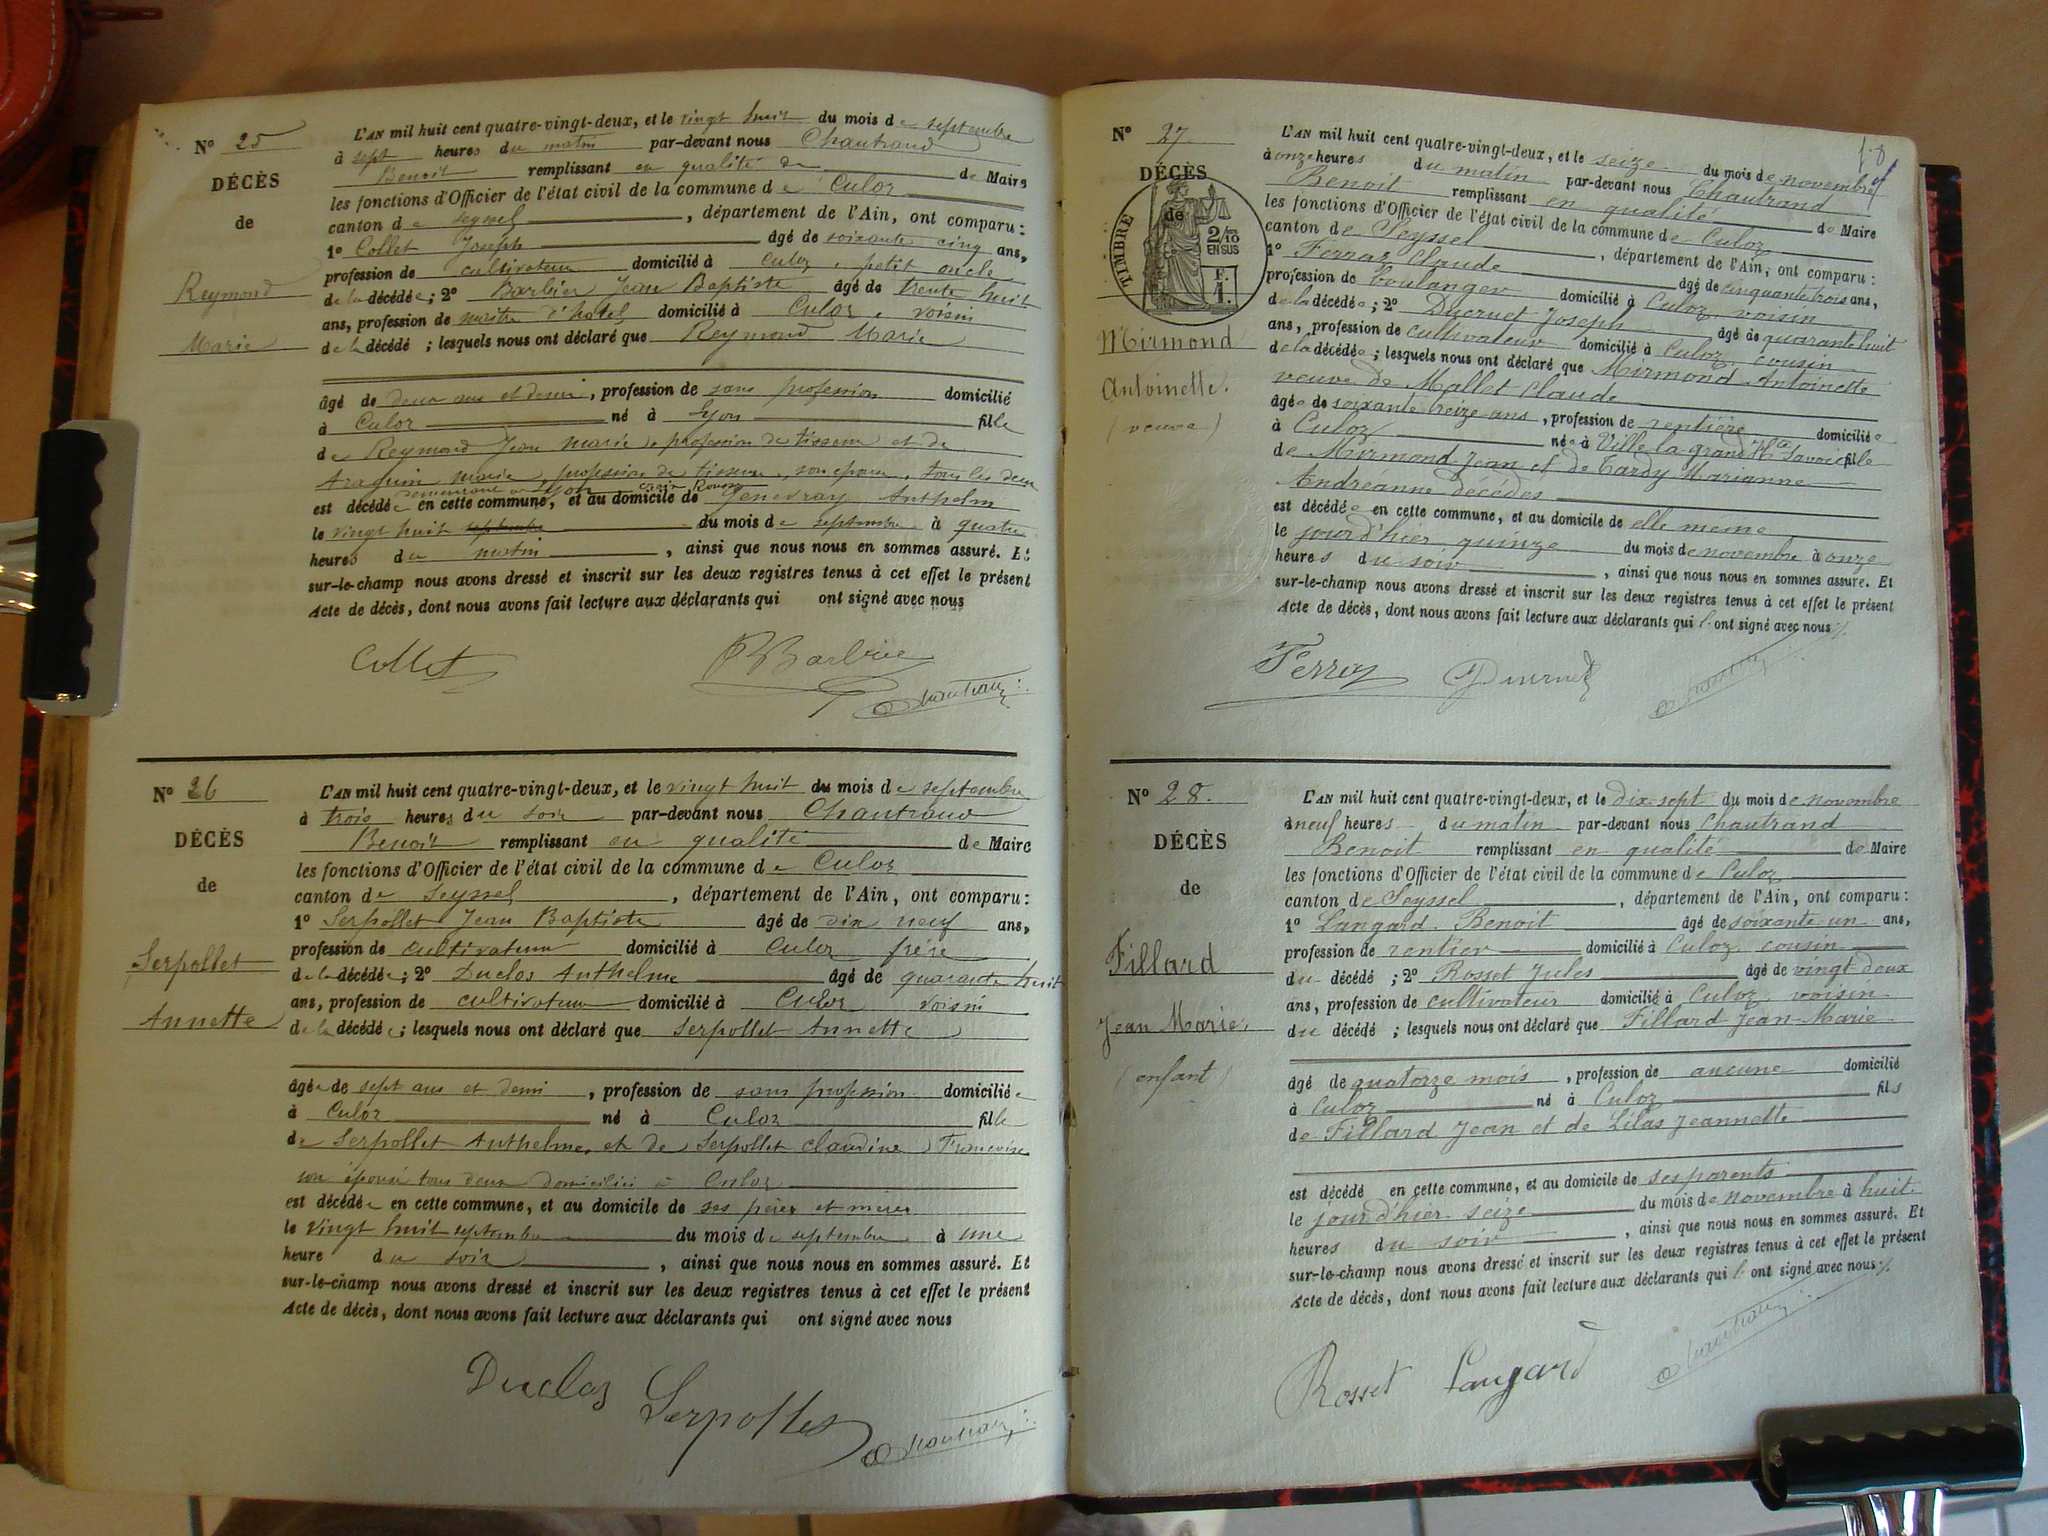 N° 25
DÉCÈS
de
Reymond
Marie
L'AN mil huit cent quatre-vingt-deux, et le vingt huit du mois de septembre
à sept heures du matin par-devant nous Chautrand
Benoit remplissant en qualité de de Maire
les fonctions d'Officier de l'état civil de la commune de Culoz
canton de seyssel, département de l'Ain, ont comparu:
1° Collet Joseph âgé de soixante cinq ans,
profession de cultivateur domicilié à Culoz, petit oncle
de la décédée; 2° Barbier Jean Baptiste âgé de trente huit
ans, profession de maître d'hotel domicilié à Culoz, voisin
de la décédé; lesquels nous ont déclaré que Reymond Marie
âgé de deux ans et demi, profession de sans profession domicilié
à Culoz né à Lyon fille
de Reymond Jean Marie, profession de tisseur et de
Araguin Marie, profession de tisseuse, son épouse, tous les deux
demeurant à Lyon croix Rousse
est décédée en cette commune, et au domicile de Genevray Anthelm
le vingt huit septembre du mois de septembre à quatre
heures du matin, ainsi que nous nous en sommes assuré. Et
sur-le-champ nous avons dressé et inscrit sur les deux registres tenus à cet effet le présent
Acte de décès, dont nous avons fait lecture aux déclarants qui ont signé avec nous
Collet Barbier Chautrand
N° 26
DÉCÈS
de
Serpollet
Annette
L'AN mil huit cent quatre-vingt-deux, et le vingt huit du mois de septembre
à trois heures du soir par-devant nous Chautrand
Benoit remplissant en qualité de Maire
les fonctions d'Officier de l'état civil de la commune de Culoz
canton de Seyssel, département de l'Ain, ont comparu:
1° Serpollet Jean Baptiste âgé de dix neuf ans,
profession de cultivateur domicilié à Culoz frère
de la décédée; 2° Duclos Anthelme âgé de quarante huit
ans, profession de cultivateur domicilié à Culoz voisin
de la décédée; lesquels nous ont déclaré que Serpollet Annette
âgée de sept ans et demi, profession de sans profession domiciliée
à Culoz né à Culoz fille
de Serpollet Anthelme, et de Serpollet Claudine Françoise
son épouse tous deux domiciliés à Culoz
est décédée en cette commune, et au domicile de ses pères et mères
le vingt huit septembre du mois de septembre à une
heure du soir, ainsi que nous nous en sommes assuré. Et
sur-le-champ nous avons dressé et inscrit sur les deux registres tenus à cet effet le présent
Acte de décès, dont nous avons fait lecture aux déclarants qui ont signé avec nous
Duclos Serpollet Chautrand
18
N° 27
DÉCÈS
de
TIMBRE
2/10 EN SUS
F. 1.
Mirmond
Antoinette.
(veuve)
L'AN mil huit cent quatre-vingt-deux, et le seize du mois de novembre
à onze heures du matin par-devant nous Chautrand
Benoit remplissant en qualité de Maire
les fonctions d'Officier de l'état civil de la commune de Culoz
canton de Seyssel, département de l'Ain, ont comparu:
1° Ferraz Claude âgé de cinquante trois ans,
profession de boulanger domicilié à Culoz, voisin
de la décédée; 2° Ducruet Joseph âgé de quarante huit
ans, profession de cultivateur domicilié à Culoz, cousin
de la décédée; lesquels nous ont déclaré que Mirmond Antoinette
veuve de Mallet Claude
âgée de soixante treize ans, profession de rentière domiciliée
à Culoz née à Ville la grand Hte Savoie fille
de Mirmond Jean et de Tardy Marianne
Andreanne décédés
est décédée en cette commune, et au domicile de elle même
le jour d'hier quinze du mois de novembre à onze
heures du soir, ainsi que nous nous en sommes assuré. Et
sur-le-champ nous avons dressé et inscrit sur les deux registres tenus à cet effet le présent
Acte de décès, dont nous avons fait lecture aux déclarants qui l'ont signé avec nous
Ferraz Ducruet Chautrand
N° 28.
DÉCÈS
de
Fillard
Jean Marie,
(enfant)
L'AN mil huit cent quatre-vingt-deux, et le dix-sept du mois de novembre
à neuf heures du matin par-devant nous Chautrand
Benoit remplissant en qualité de Maire
les fonctions d'Officier de l'état civil de la commune de Culoz
canton de Seyssel, département de l'Ain, ont comparu:
1° Langard Benoit âgé de soixante un ans,
profession de rentier domicilié à Culoz, cousin
du décédé; 2° Rosset Jules âgé de vingt deux
ans, profession de cultivateur domicilié à Culoz, voisin
du décédé; lesquels nous ont déclaré que Fillard Jean-Marie
âgé de quatorze mois, profession de aucune domicilié
à Culoz né à Culoz fils
de Fillard Jean et de Lilas Jeannette
est décédé en cette commune, et au domicile de ses parents
le jour d'hier seize du mois de novembre à huit
heures du soir, ainsi que nous nous en sommes assuré. Et
sur-le-champ nous avons dressé et inscrit sur les deux registres tenus à cet effet le présent
Acte de décès, dont nous avons fait lecture aux déclarants qui l'ont signé avec nous
Rosset Langard Chautrand